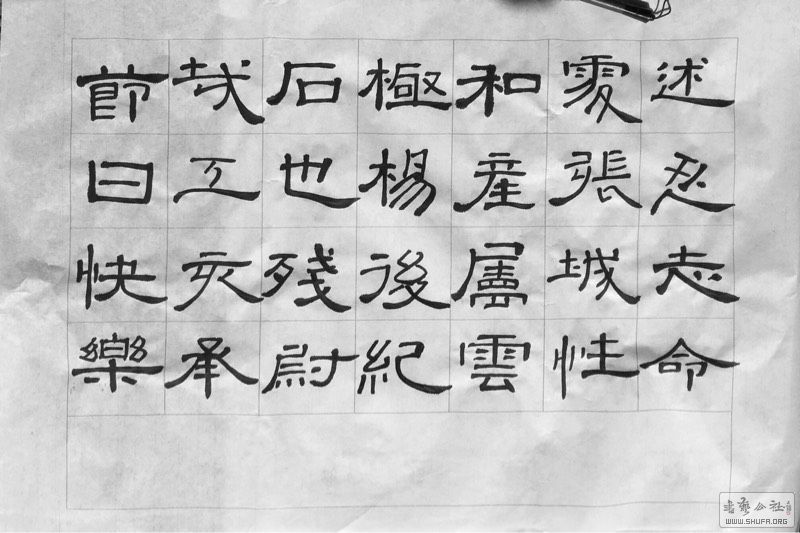 述忍志命
張城性
和產雲
極楊後紀
石也殘尉
哉亥承
節日快樂
書藝公社
WWW.SHUFA.ORG